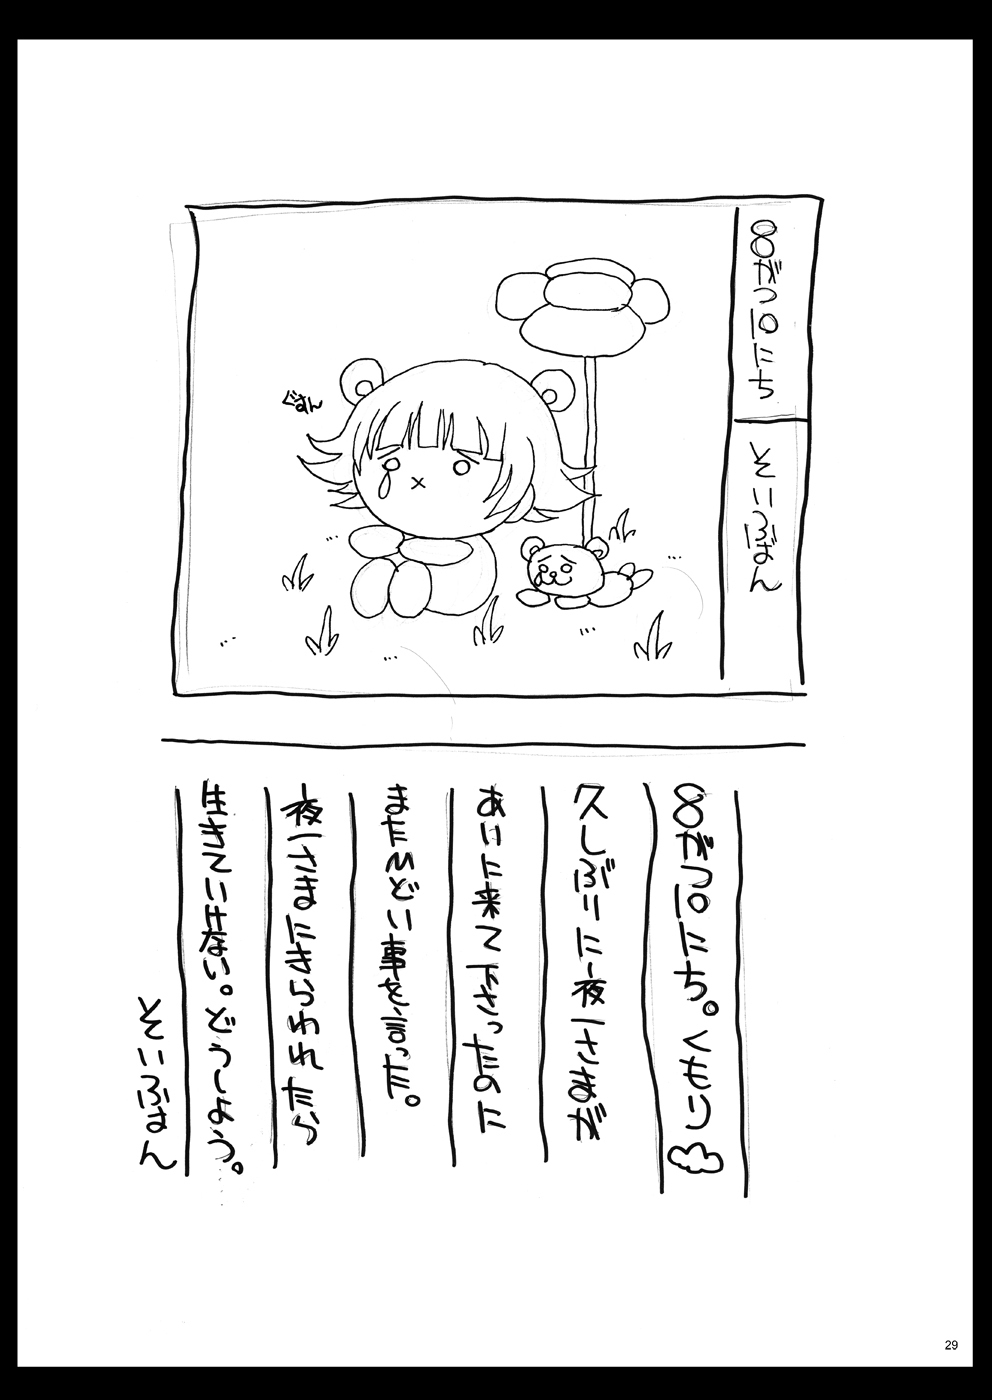 8がつ10にち
そいふぉん
ぐすん
8がつ10にち。くもり
久しぶりに夜一さまが
あいに来て下さったのに
またひどい事を言った。
夜一さまにきらわれたら
生きていけない。どうしよう。
そいふぉん
29